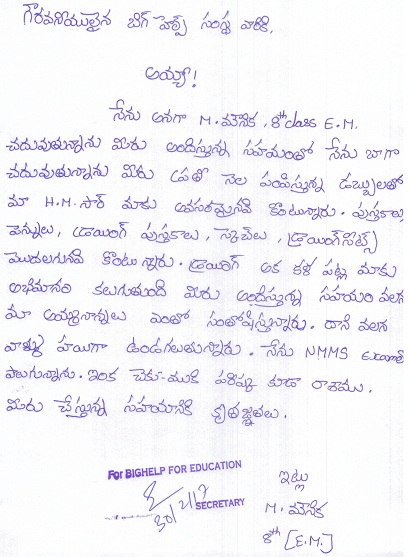 గౌరవనీయులైన బిగ్ హెల్ప్ సంస్థ వారికి,
అయ్యా!
నేను అనగా M. మౌనిక, 8th class E.M.
చదువుతున్నాను మీరు అందిస్తున్న సహాయంతో నేను బాగా
చదువుతున్నాను మీరు ప్రతి నెల పంపిస్తున్న డబ్బులతో
మా H.M. సార్ మాకు అవసరమైనవి కొంటున్నారు. పుస్తకాలు,
పెన్నులు, డ్రాయింగ్ పుస్తకాలు, స్కెచ్‌లు, డ్రాయింగ్‌సీట్స్
మొదలగునవి కొంటున్నారు. డ్రాయింగ్ అక కళ పట్ల మాకు
అభిమానం కలుగుతుంది మీరు అందిస్తున్న సహాయం వలన
మా అమ్మనాన్నలు ఎంతో సంతోషిస్తున్నారు. దాని వలన
వాళ్ళు హయిగా ఉండగలుతున్నారు. నేను NMMS Exam
రాయాము. ఇంక చెకు-ముకి పరీక్ష కూడా రాశాము.
మీరు చేస్తున్న సహాయానికి కృతజ్ఞతలు.
For BIGHELP FOR EDUCATION
SECRETARY
30/2/17
ఇట్లు
M. మౌనిక
8th [E.M.]